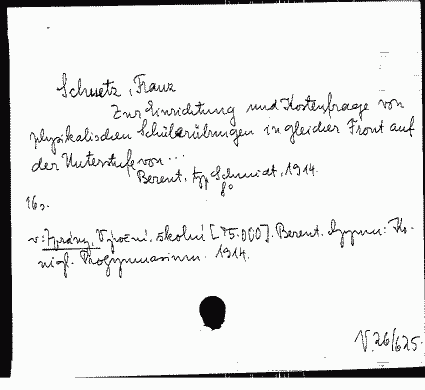 Schuetz, Franz
Zur Einrichtung und Kostenfrage von
physikalischen Schülerübungen in gleicher Front auf
der Unterstufe von ...
Berent, typ Schmidt, 1914.
8°
16 s.
v: Zprávy, Výroční, školní [75.000]. Berent. Gymn: Kö-
nigl. Progymnasium. 1914.
V.26/625.